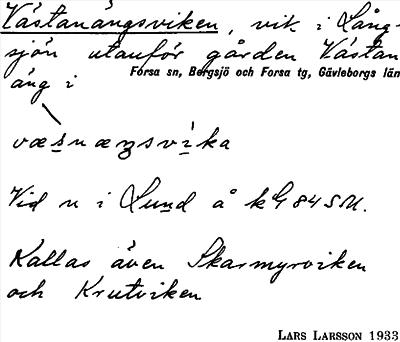 Västanängsviken, vik i Lång-
sjön utanför gården Västan
äng i Forsa sn, Bergsjö och Forsa tg, Gävleborgs län
væsnæŋsvika
Vid n i Lund å kG 84 SM.
Kallas även Skarmyrviken
och Krutviken
LARS LARSSON 1933